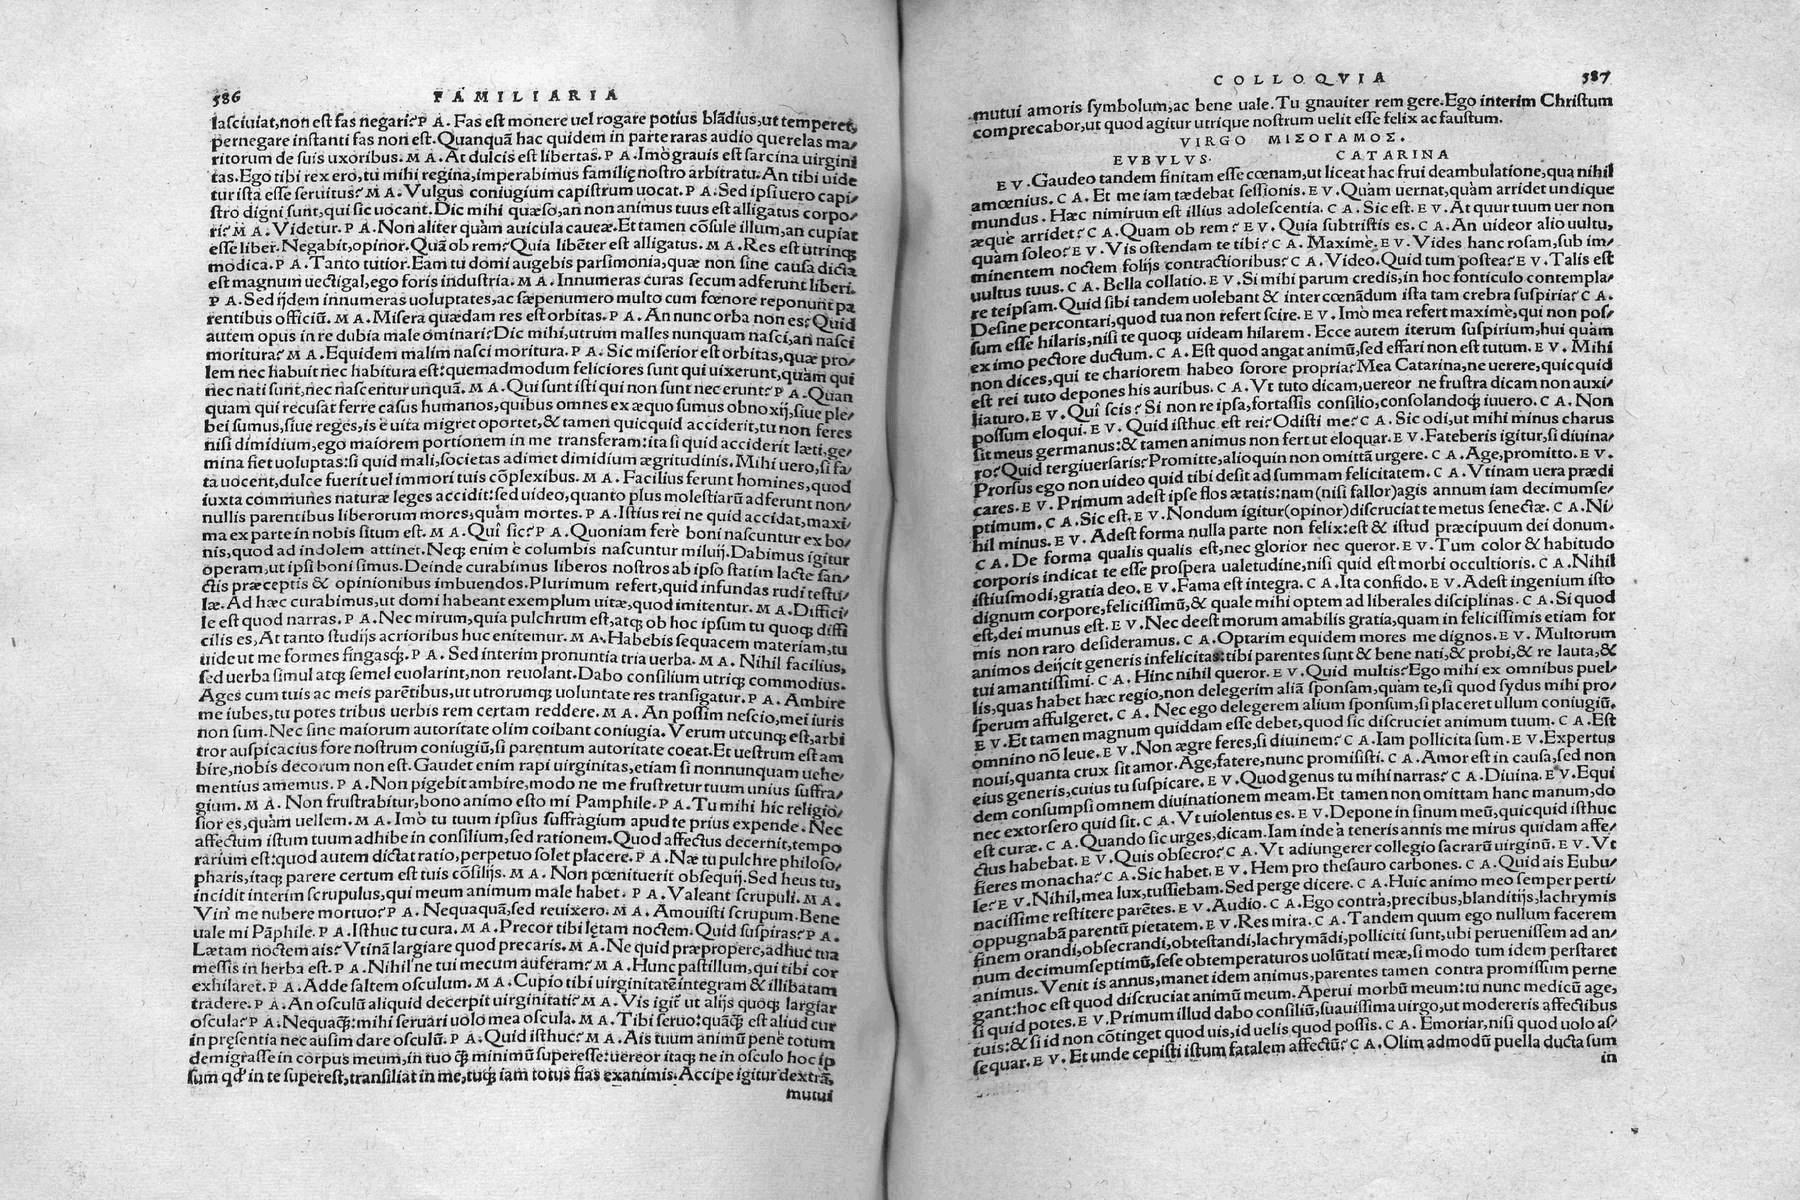 586 FAMILIARIA
lasciuiat,non est fas negari? P A. Fas est monere uel rogare potius blãdius,ut temperet,
pernegare instanti fas non est. Quanquã hac quidem in parte raras audio querelas ma/
ritorum de suis uxoribus. M A. At dulcis est libertas. P A. Imò grauis est sarcina uirgini
tas. Ego tibi rex ero, tu mihi regina, imperabimus familię nostro arbitratu. An tibi uide
tur ista esse seruitus? M A. Vulgus coniugium capistrum uocat. P A. Sed ipsi uero capi/
stro digni sunt, qui sic uocant. Dic mihi quæso, an non animus tuus est alligatus corpo/
ri? M A. Videtur. P A. Non aliter quàm auicula caueæ. Et tamen cõsule illum, an cupiat
esse liber. Negabit, opinor. Quã ob rem? Quia libẽter est alligatus. M A. Res est utrinqꝫ
modica. P A. Tanto tutior. Eam tu domi augebis parsimonia, quæ non sine causa dicta
est magnum uectigal, ego foris industria. M A. Innumeras curas secum adferunt liberi.
P A. Sed ijdem innumeras uoluptates, ac sæpenumero multo cum fœnore reponunt pa
rentibus officiũ. M A. Misera quædam res est orbitas. P A. An nunc orba non es? Quid
autem opus in re dubia male ominari? Dic mihi, utrum malles nunquam nasci, an nasci
moritura? M A. Equidem malim nasci moritura. P A. Sic miserior est orbitas, quæ pro/
lem nec habuit nec habitura est: quemadmodum feliciores sunt qui uixerunt, quàm qui
nec nati sunt, nec nascentur unquã. M A. Qui sunt isti qui non sunt nec erunt? P A. Quan
quam qui recusat ferre casus humanos, quibus omnes ex æquo sumus obnoxij, siue ple/
bei sumus, siue reges, is è uita migret oportet, & tamen quicquid acciderit, tu non feres
nisi dimidium, ego maiorem portionem in me transferam: ita si quid acciderit læti, ge/
mina fiet uoluptas: si quid mali, societas adimet dimidium ægritudinis. Mihi uero, si fa/
ta uocent, dulce fuerit uel immori tuis cõplexibus. M A. Facilius ferunt homines, quod
iuxta communes naturæ leges accidit: sed uideo, quanto plus molestiarũ adferunt non/
nullis parentibus liberorum mores, quàm mortes. P A. Istius rei ne quid accidat, maxi/
ma ex parte in nobis situm est. M A. Quî sic? P A. Quoniam ferè boni nascuntur ex bo/
nis, quod ad indolem attinet. Neqꝫ enim è columbis nascuntur miluij. Dabimus igitur
operam, ut ipsi boni simus. Deinde curabimus liberos nostros ab ipso statim lacte san/
ctis præceptis & opinionibus imbuendos. Plurimum refert, quid infundas rudi testu/
læ. Ad hæc curabimus, ut domi habeant exemplum uitæ, quod imitentur. M A. Diffici/
le est quod narras. P A. Nec mirum, quia pulchrum est, atqꝫ ob hoc ipsum tu quoqꝫ diffi
cilis es, At tanto studijs acrioribus huc enitemur. M A. Habebis sequacem materiam, tu
uide ut me formes fingasqꝫ. P A. Sed interim pronuntia tria uerba. M A. Nihil facilius,
sed uerba simul atqꝫ semel euolarint, non reuolant. Dabo consilium utriqꝫ commodius.
Ages cum tuis ac meis parẽtibus, ut utrorumqꝫ uoluntate res transigatur. P A. Ambire
me iubes, tu potes tribus uerbis rem certam reddere. M A. An possim nescio, mei iuris
non sum. Nec sine maiorum autoritate olim coibant coniugia. Verum utcunqꝫ est, arbi
tror auspicacius fore nostrum coniugiũ, si parentum autoritate coeat. Et uestrum est am
bire, nobis decorum non est. Gaudet enim rapi uirginitas, etiam si nonnunquam uehe/
mentius amemus. P A. Non pigebit ambire, modo ne me frustretur tuum unius suffra/
gium. M A. Non frustrabitur, bono animo esto mi Pamphile. P A. Tu mihi hic religio/
sior es, quàm uellem. M A. Imò tu tuum ipsius suffragium apud te prius expende. Nec
affectum istum tuum adhibe in consilium, sed rationem. Quod affectus decernit, tempo
rarium est: quod autem dictat ratio, perpetuo solet placere. P A. Næ tu pulchre philoso/
pharis, itaqꝫ parere certum est tuis cõsilijs. M A. Non pœniturit obsequij. Sed heus tu,
incidit interim scrupulus, qui meum animum male habet. P A. Valeant scrupuli. M A.
Vin' me nubere mortuo? P A. Nequaquã, sed reuixero. M A. Amouisti scrupum. Bene
uale mi Pãphile. P A. Isthuc tu cura. M A. Precor tibi lętam noctem. Quid suspiras? P A.
Lætam noctem ais? Vtinã largiare quod precaris. M A. Ne quid præpropere, adhuc tua
messis in herba est. P A. Nihil'ne tui mecum auferam? M A. Hunc pastillum, qui tibi cor
exhilaret. P A. Adde saltem osculum. M A. Cupio tibi uirginitatẽ integram & illibatam
tradere. P A. An osculũ aliquid decerpit uirginitati? M A. Vis igit̃ ut alijs quoqꝫ largiar
oscula? P A. Nequaq̃: mihi seruari uolo mea oscula. M A. Tibi seruo: quãq̃ est aliud cur
in pręsentia nec ausim dare osculũ. P A. Quid isthuc? M A. Ais tuum animũ penè totum
demigrasse in corpus meum, in tuo q̃ minimũ superesse: uereor itaqꝫ ne in osculo hoc ip
sum qd' in te superest, transiliat in me, tuqꝫ iam totus fias exanimis. Accipe igitur dextrã,
mutui
COLLOQVIA 587
mutui amoris symbolum, ac bene uale. Tu gnauiter rem gere. Ego interim Christum
comprecabor, ut quod agitur utrique nostrum uelit esse felix ac faustum.
VIRGO ΜΙΣΟΓΑΜΟΣ.
EVBVLVS. CATARINA
E V. Gaudeo tandem finitam esse cœnam, ut liceat hac frui deambulatione, qua nihil
amœnius. C A. Et me iam tædebat sessionis. E V. Quàm uernat, quàm arridet undique
mundus. Hæc nimirum est illius adolescentia. C A. Sic est. E V. At quur tuum uer non
æque arridet? C A. Quam ob rem? E V. Quia subtristis es. C A. An uideor alio uultu,
quam soleo? E V. Vis ostendam te tibi? C A. Maxime. E V. Vides hanc rosam, sub im/
minentem noctem folijs contractioribus? C A. Video. Quid tum postea? E V. Talis est
uultus tuus. C A. Bella collatio. E V. Si mihi parum credis, in hoc fonticulo contempla/
re teipsam. Quid sibi tandem uolebant & inter cœnãdum ista tam crebra suspiria? C A.
Desine percontari, quod tua non refert scire. E V. Imò mea refert maxime, qui non pos/
sum esse hilaris, nisi te quoqꝫ uideam hilarem. Ecce autem iterum suspirium, hui quàm
ex imo pectore ductum. C A. Est quod angat animũ, sed effari non est tutum. E V. Mihi
non dices, qui te chariorem habeo sorore propria? Mea Catarina, ne uerere, quicquid
est rei tuto depones his auribus. C A. Vt tuto dicam, uereor ne frustra dicam non auxi/
liaturo. E V. Quî scis? Si non re ipsa, fortassis consilio, consolandoqꝫ iuuero. C A. Non
possum eloqui. E V. Quid isthuc est rei? Odisti me? C A. Sic odi, ut mihi minus charus
sit meus germanus: & tamen animus non fert ut eloquar. E V. Fateberis igitur, si diuina/
ro? Quid tergiuersaris? Promitte, alioquin non omittã urgere. C A. Age, promitto. E V.
Prorsus ego non uideo quid tibi desit ad summam felicitatem. C A. Vtinam uera prædi
cares. E V. Primum adest ipse flos ætatis: nam (nisi fallor) agis annum iam decimumse/
ptimum. C A. Sic est. E V. Nondum igitur (opinor) discruciat te metus senectæ. C A. Ni/
hil minus. E V. Adest forma nulla parte non felix: est & istud præcipuum dei donum.
C A. De forma qualis qualis est, nec glorior nec queror. E V. Tum color & habitudo
corporis indicat te esse prospera ualetudine, nisi quid est morbi occultioris. C A. Nihil
istiusmodi, gratia deo. E V. Fama est integra. C A. Ita confido. E V. Adest ingenium isto
dignum corpore, felicissimũ, & quale mihi optem ad liberales disciplinas. C A. Si quod
est, dei munus est. E V. Nec deest morum amabilis gratia, quam in felicissimis etiam for
mis non raro desideramus. C A. Optarim equidem mores me dignos. E V. Multorum
animos deijcit generis infelicitas: tibi parentes sunt & bene nati, & probi, & re lauta, &
tui amantissimi. C A. Hinc nihil queror. E V. Quid multis? Ego mihi ex omnibus puel/
lis, quas habet hæc regio, non delegerim aliã sponsam, quàm te, si quod sydus mihi pro/
sperum affulgeret. C A. Nec ego delegerem alium sponsum, si placeret ullum coniugiũ.
E V. Et tamen magnum quiddam esse debet, quod sic discruciet animum tuum. C A. Est
omnino nõ leue. E V. Non ægre feres, si diuinem? C A. Iam pollicita sum. E V. Expertus
noui, quanta crux sit amor. Age, fatere, nunc promisisti. C A. Amor est in causa, sed non
eius generis, cuius tu suspicare. E V. Quod genus tu mihi narras? C A. Diuina. E V. Equi
dem consumpsi omnem diuinationem meam. Et tamen non omittam hanc manum, do
nec extorsero quid sit. C A. Vt uiolentus es. E V. Depone in sinum meũ, quicquid isthuc
est curæ. C A. Quando sic urges, dicam. Iam inde à teneris annis me mirus quidam affe/
ctus habebat. E V. Quis obsecro? C A. Vt adiungerer collegio sacrarũ uirginũ. E V. Vt
fieres monacha? C A. Sic habet. E V. Hem pro thesauro carbones. C A. Quid ais Eubu/
le? E V. Nihil, mea lux, tussiebam. Sed perge dicere. C A. Huic animo meo semper perti/
nacissime restitere parẽtes. E V. Audio. C A. Ego contrà, precibus, blanditijs, lachrymis
oppugnabã parentũ pietatem. E V. Res mira. C A. Tandem quum ego nullum facerem
finem orandi, obsecrandi, obtestandi, lachrymãdi, polliciti sunt, ubi peruenissem ad an/
num decimumseptimũ, sese obtemperaturos uolũtati meæ, si modo tum idem perstaret
animus. Venit is annus, manet idem animus, parentes tamen contra promissum perne
gant: hoc est quod discruciat animũ meum. Aperui morbũ meum: tu nunc medicũ age,
si quid potes. E V. Primum illud dabo consiliũ, suauissima uirgo, ut modereris affectibus
tuis: & si id non cõtinget quod uis, id uelis quod possis. C A. Emoriar, nisi quod uolo as/
sequar. E V. Et unde cepisti istum fatalem affectũ? C A. Olim admodũ puella ducta sum
in